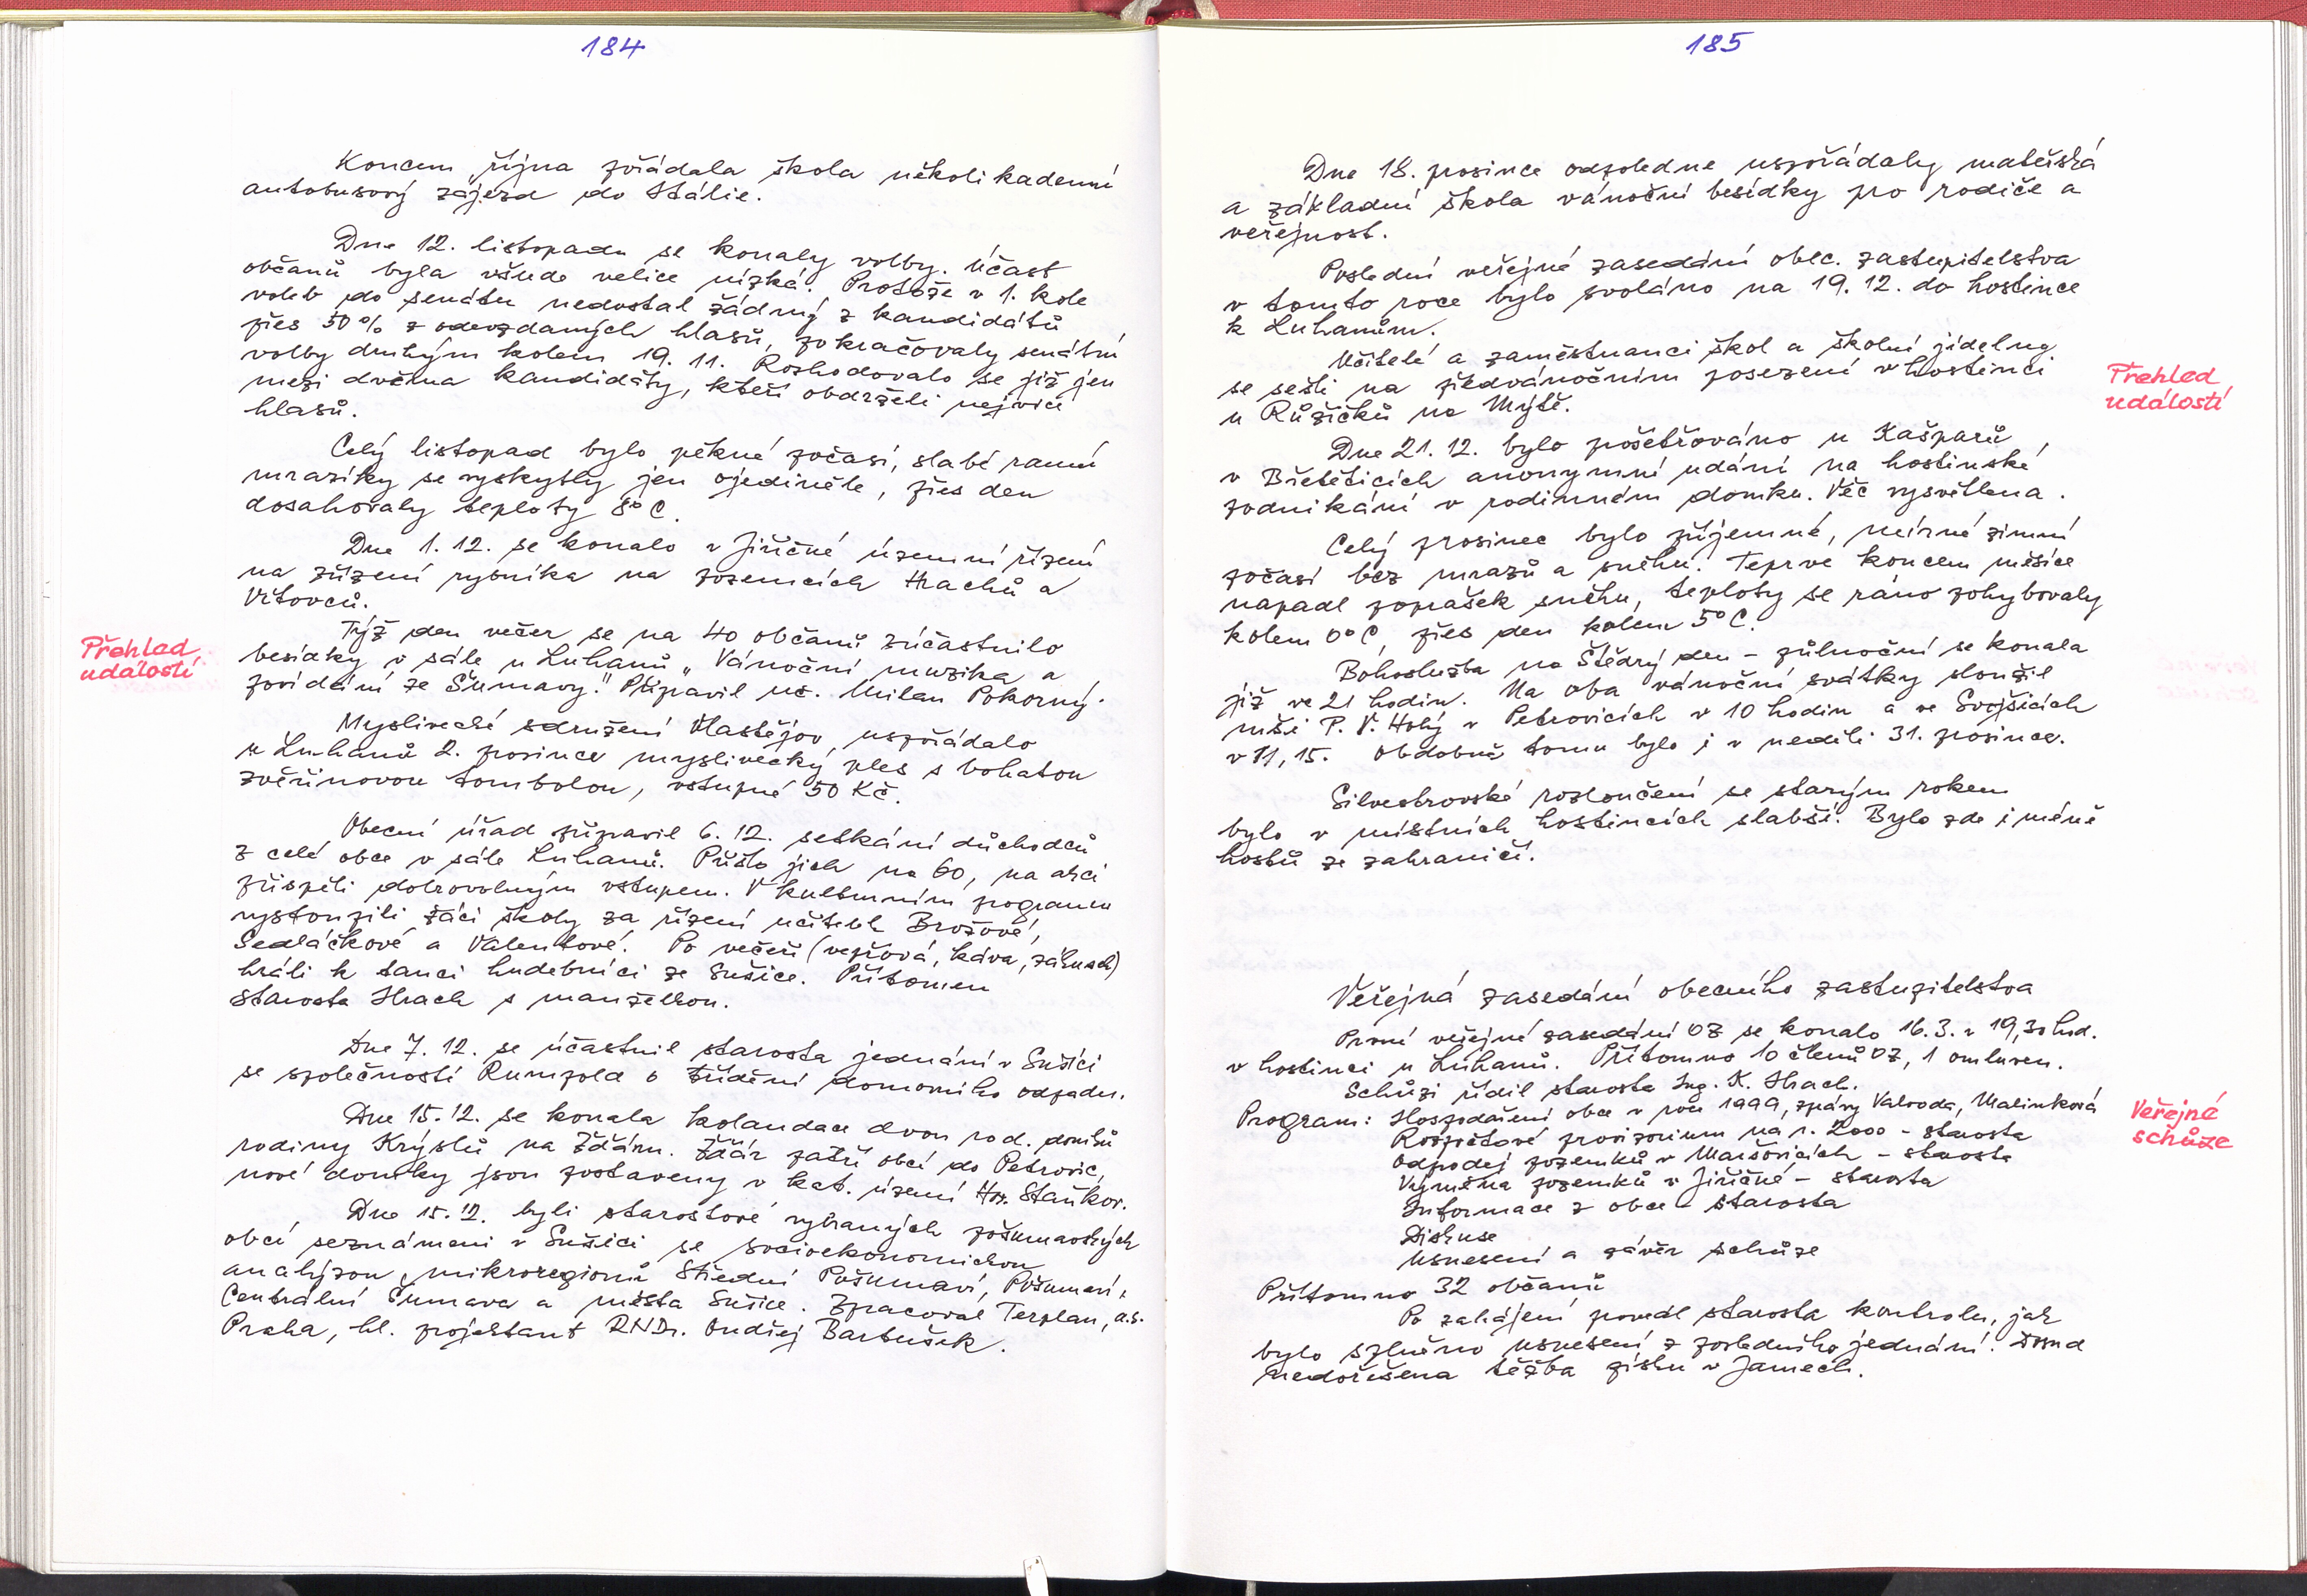 184
Koncem října pořádala škola několikadenní
autobusový zájezd do Itálie.
Dne 12. listopadu se konaly volby. Účast
občanů byla všude velice nízká. Protože v 1. kole
voleb do senátu nedostal žádný z kandidátů
přes 50% z odevzdaných hlasů, pokračovaly senátní
volby druhým kolem 19. 11. Rozhodovalo se již jen
mezi dvěma kandidáty, kteří obdrželi nejvíce
hlasů.
Celý listopad bylo pěkné počasí, slabé ranní
mrazíky se vyskytly jen ojediněle, přes den
dosahovaly teploty 8° C.
Dne 1. 12. se konalo v Jiřičné územní řízení
na zřízení rybníka na pozemcích Hrachů a
Vítovců.
Týž den večer se na 40 občanů zúčastnilo
besídky v sále u Luhanů „Vánoční muzika a
povídání ze Šumavy." Připravil us. Milan Pokorný.
Přehled
událostí
Myslivecké sdružení Vlastějov uspořádalo
u Luhanů 2. prosince myslivecký ples s bohatou
zvěřinovou tombolou, vstupné 50 Kč.
Obecní úřad připravil 6. 12. setkání důchodců
z celé obce v sále Luhanů. Přišlo jich na 60, na akci
přispěli dobrovolným vstupem. V kulturním programu
vystoupili žáci školy za řízení učitelek Brožové,
Sedláčkové a Valentové. Po večeři (vepřová, káva, zákusek)
hráli k tanci hudebníci ze Sušice. Přítomen
starosta Hrach s manželkou.
Dne 7. 12. se účastnil starosta jednání v Sušici
se společností Rumpold o třídění domovního odpadu.
Dne 15. 12. se konala kolaudace dvou rod. domků
rodiny Krýslů na Žďáru. Žďár patří obcí do Petrovic,
nové domky jsou postaveny v kat. území Hor. Staňkov.
Dne 15. 12. byli starostové vybraných pošumavských
obcí seznámeni v Sušici se socioekonomickou
analýzou mikroregionů Střední Pošumaví, Pošumaví,
Centrální Šumava a města Sušice. Zpracoval Terplan, a.s.
Praha, hl. projektant RNDr. Ondřej Bartušek.
185
Dne 18. prosince odpoledne uspořádaly mateřská
a základní škola vánoční besídky pro rodiče a
veřejnost.
Poslední veřejné zasedání obec. zastupitelstva
v tomto roce bylo svoláno na 19. 12. do hostince
k Luhanům.
Učitelé a zaměstnanci škol a školní jídelny
se sešli na předvánočním posezení v hostinci
u Růžičků na Mýtě.
Přehled
událostí
Dne 21. 12. bylo pošetřováno u Kašparů
v Břetěticích anonymní udání na hostinské
podnikání v rodinném domku. Věc vysvětlena.
Celý prosinec bylo příjemné, mírné zimní
počasí bez mrazů a sněhu. Teprve koncem měsíce
napadl poprašek sněhu, teploty se ráno pohybovaly
kolem 0° C, přes den kolem 5° C.
Bohoslužba na Štědrý den - půlnoční se konala
již ve 21 hodin. Na oba vánoční svátky sloužil
mši P. V. Holý v Petrovicích v 10 hodin a ve Svojšicích
v 11,15. Obdobně tomu bylo i v neděli 31. prosince.
Silvestrovské rozloučení se starým rokem
bylo v místních hostincích slabší. Bylo zde i méně
hostů ze zahraničí.
Veřejná zasedání obecního zastupitelstva
První veřejné zasedání OZ se konalo 16. 3. v 19,30 hod.
v hostinci u Luhanů. Přítomno 10 členů OZ, 1 omluven.
Schůzi řídil starosta Ing. K. Hrach.
Program: Hospodaření obce v roce 1999, zprávy Valvoda, Malinková
Rozpočtové provizorium na r. 2000 - starosta
Odprodej pozemků v Maršovicích - starosta
Výměna pozemků v Jiřičné - starosta
Informace z obce - starosta
Diskuse
Usnesení a závěr schůze
Veřejné
schůze
Přítomno 32 občanů
Po zahájení provedl starosta kontrolu, jak
bylo splněno usnesení z posledního jednání. Dosud
nedořešena těžba písku v Jamech.